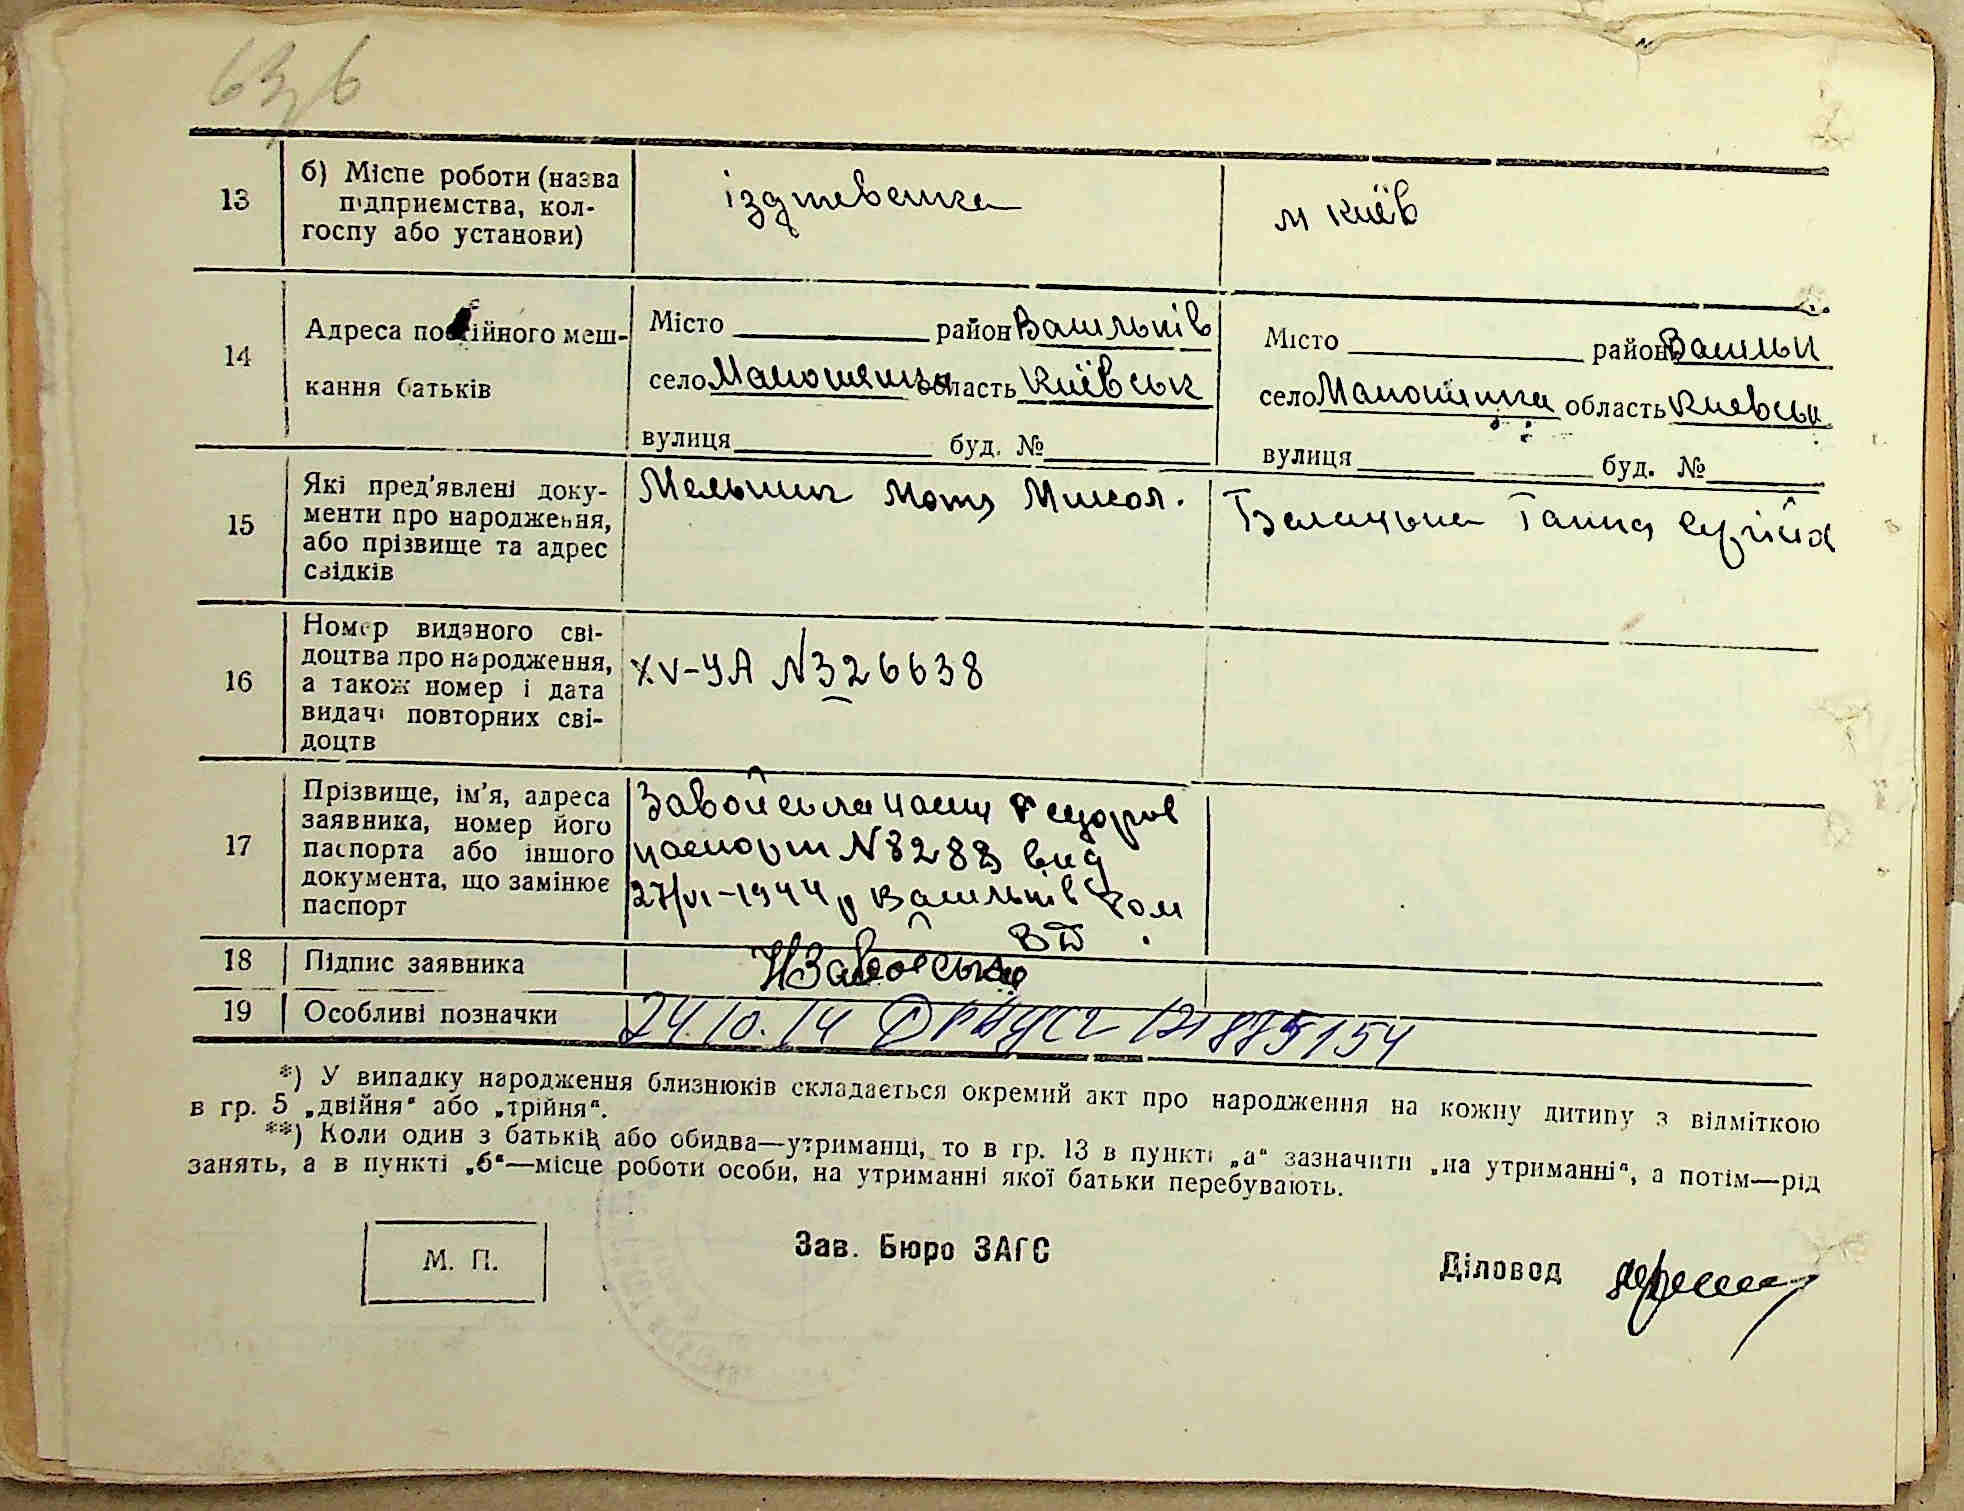 63
13 б) Місце роботи (назва
підприємства, кол-
госпу або установи) м Київ
14 Адреса постійного меш-
кання батьків
Місто район Васильків Місто район Васильк
село область Київськ село область Киевськ
вулиця буд. № вулиця буд. №
15 Які пред'явлені доку-
менти про народження,
або прізвище та адрес
свідків
Мельник Мотя Микол. Ганна
16 Номер виданого сві-
доцтва про народження,
а також номер і дата
видачі повторних сві-
доцтв
XV-УА N 326638
17 Прізвище, ім'я, адреса
заявника, номер його
паспорта або іншого
документа, що замінює
паспорт
Федоров
паспорт N 8288 вид
27/VI-1944 р Васильків
18 Підпис заявника
19 Особливі позначки 24.10.14 ДРАЦСГ
*) У випадку народження близнюків складається окремий акт про народження на кожну дитину з відміткою
в гр. 5 „двійня“ або „трійня“.
**) Коли один з батьків або обидва—утриманці, то в гр. 13 в пункті „а“ зазначити „на утриманні“, а потім—рід
занять, а в пункті „б“—місце роботи особи, на утриманні якої батьки перебувають.
М. П. Зав. Бюро ЗАГС Діловод